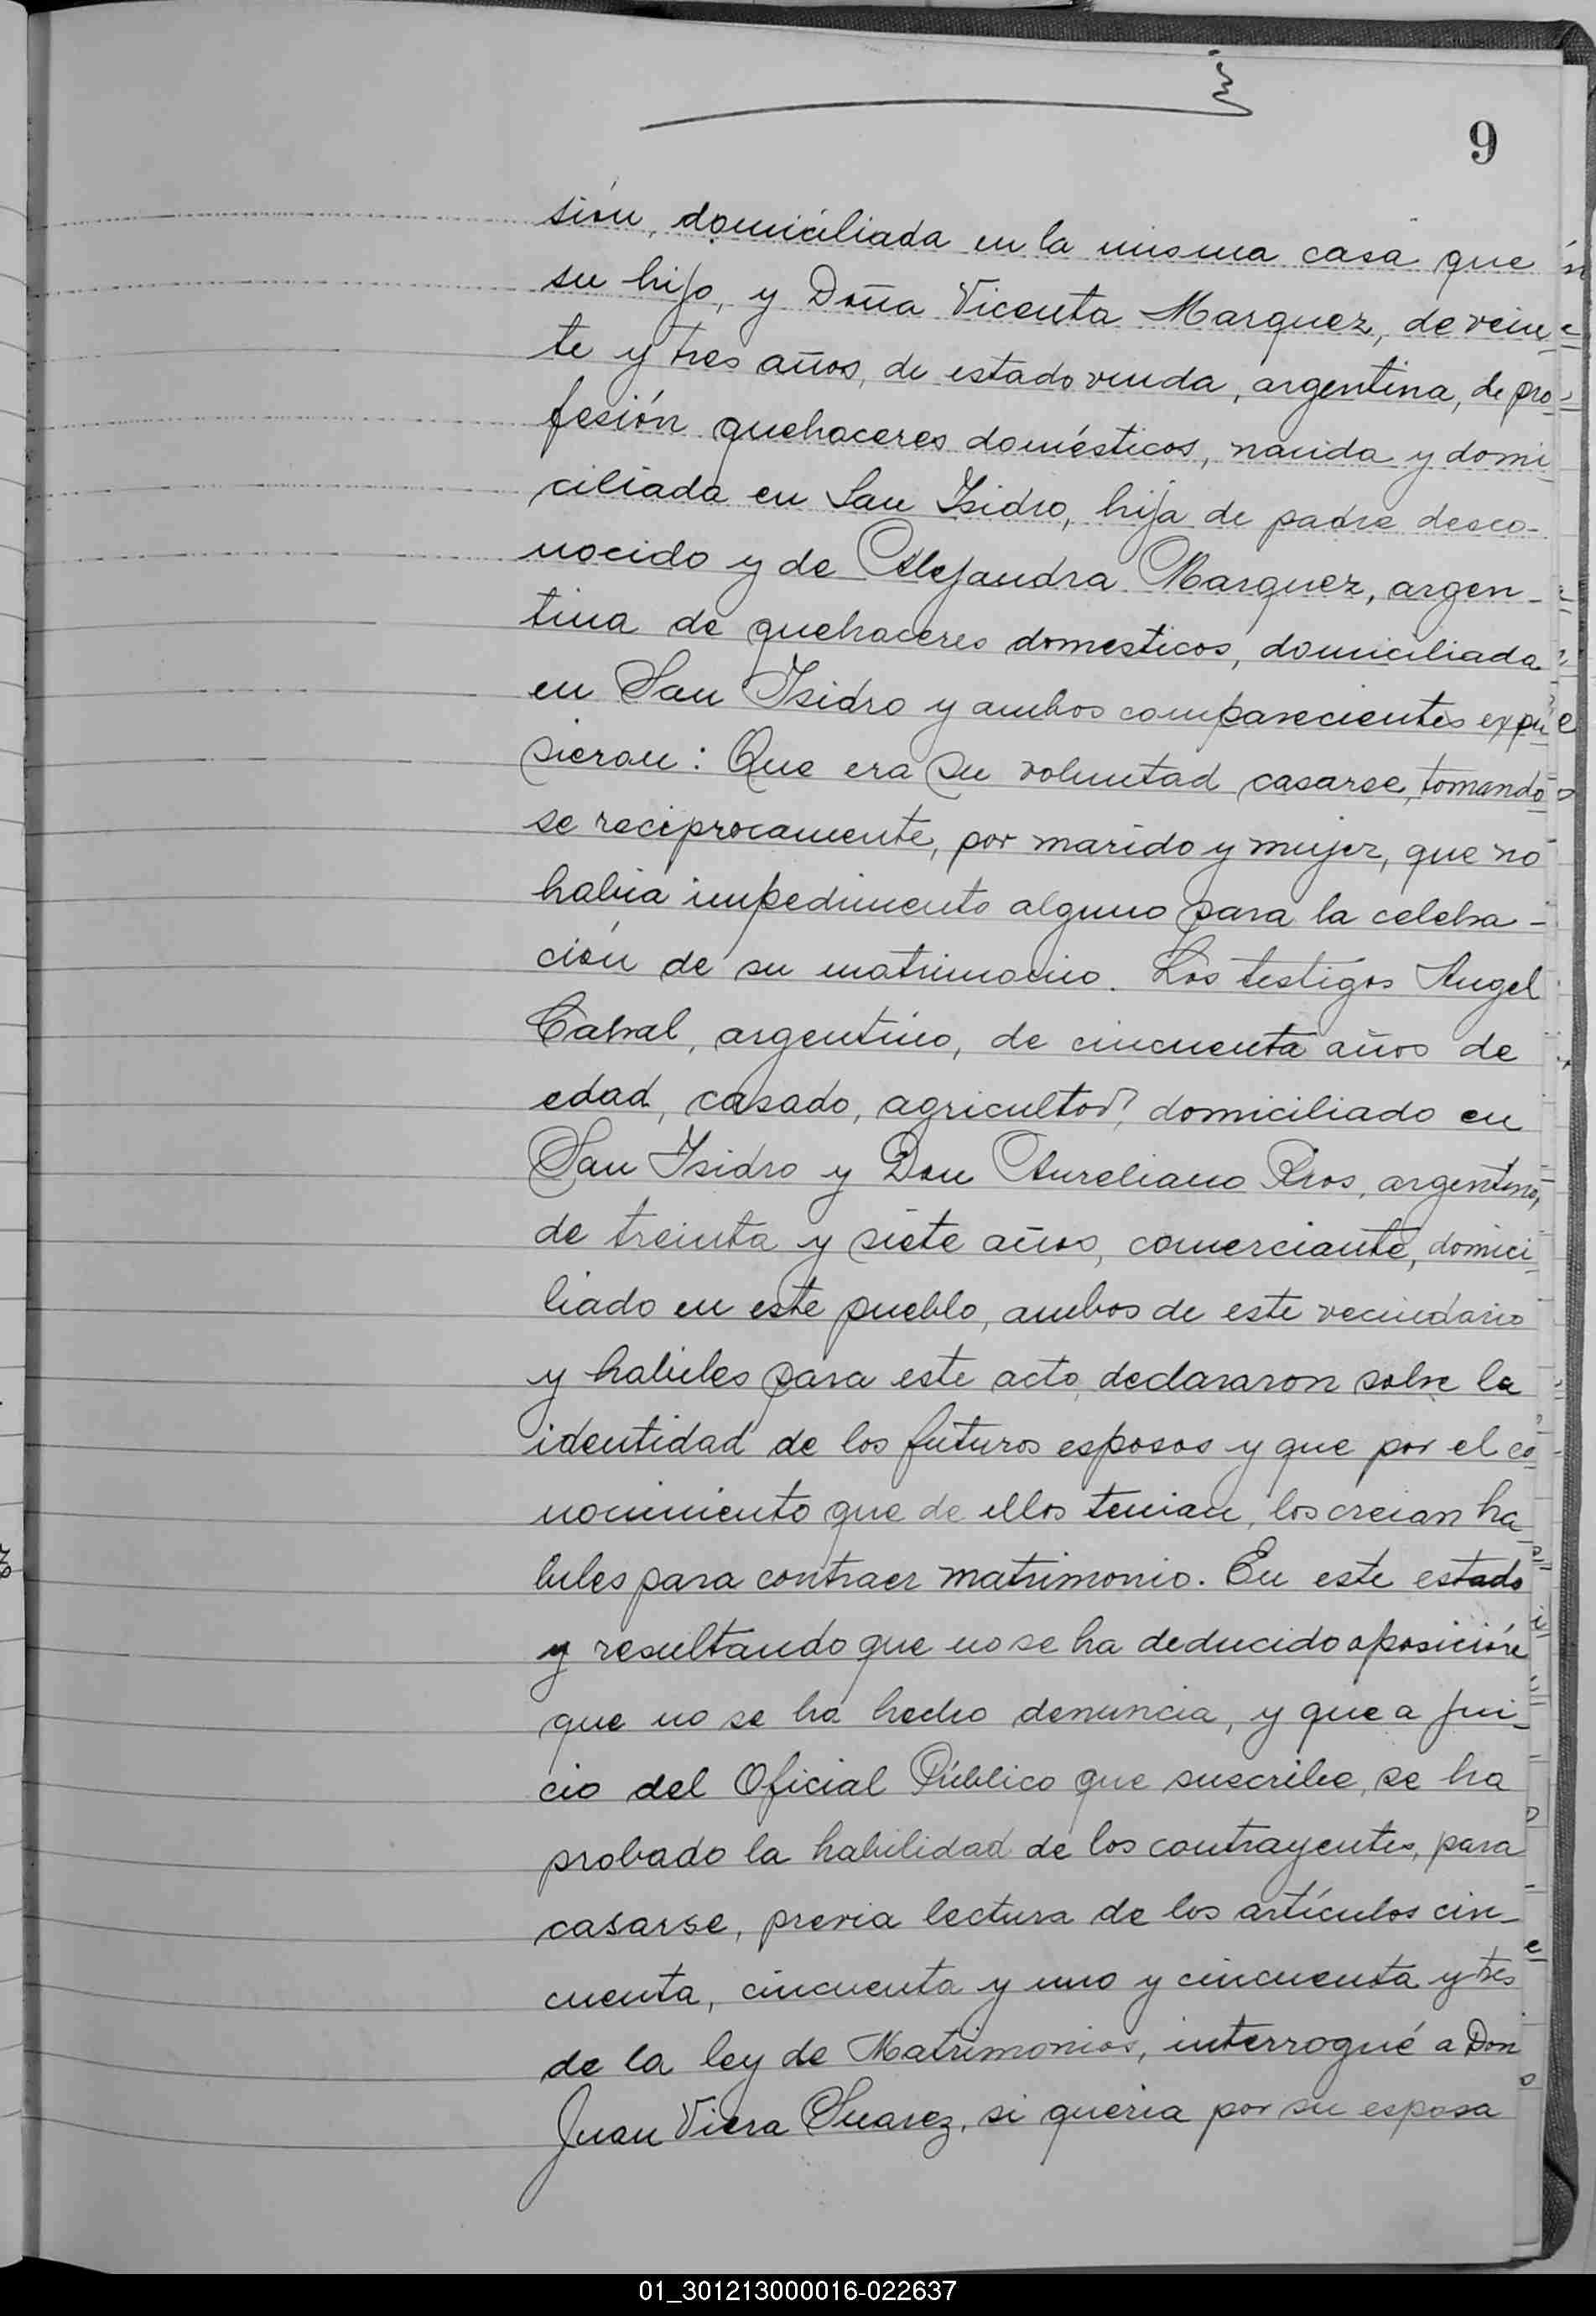 9
sión, domiciliada en la misma casa que
su hijo, y Doña Vicenta Marquez, de vein
te y tres años, de estado viuda, argentina, de pro
fesión quehaceres domésticos, nacida y domi
ciliada en San Isidro, hija de padre desco-
nocido y de Alejandra Marquez, argen-
tina de quehaceres domesticos, domiciliada
en San Isidro y ambos comparecientes expu
sieron: Que era su voluntad casarse, tomando
se reciprocamente, por marido y mujer, que no
habia impedimento alguno para la celebra-
ción de su matrimonio. Los testigos Angel
Cabral, argentino, de cincuenta años de
edad, casado, agricultor, domiciliado en
San Isidro y Don Aureliano Rios, argentino,
de treinta y siete años, comerciante, domici
liado en este pueblo, ambos de este vecindario
y habiles para este acto, declararon sobre la
identidad de los futuros esposos y que por el co
nocimiento que de ellos tenian, los creian ha
biles para contraer matrimonio. En este estado
y resultando que no se ha deducido oposición
que no se ha hecho denuncia, y que a jui-
cio del Oficial Público que suscribe, se ha
probado la habilidad de los contrayentes, para
casarse, previa lectura de los artículos cin-
cuenta, cincuenta y uno y cincuenta y tres
de la ley de Matrimonios, interrogué a Don
Juan Viera Suarez, si queria por su esposa
01_301213000016-022637